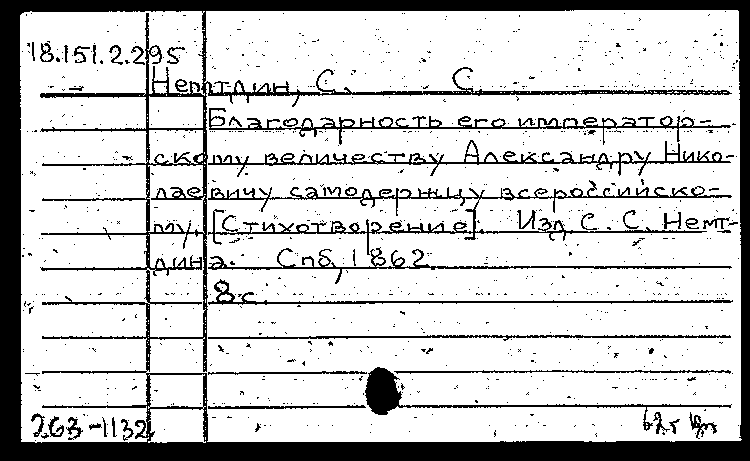 18.151.2.295
Немтдин, С. С.
Благодарность его император-
скому величеству Александру Нико-
лаевичу самодержцу всероссийско-
му. [Стихотворение]. Изд. С. С. Немт-
дина. Спб, 1862.
8 с.
263-1132